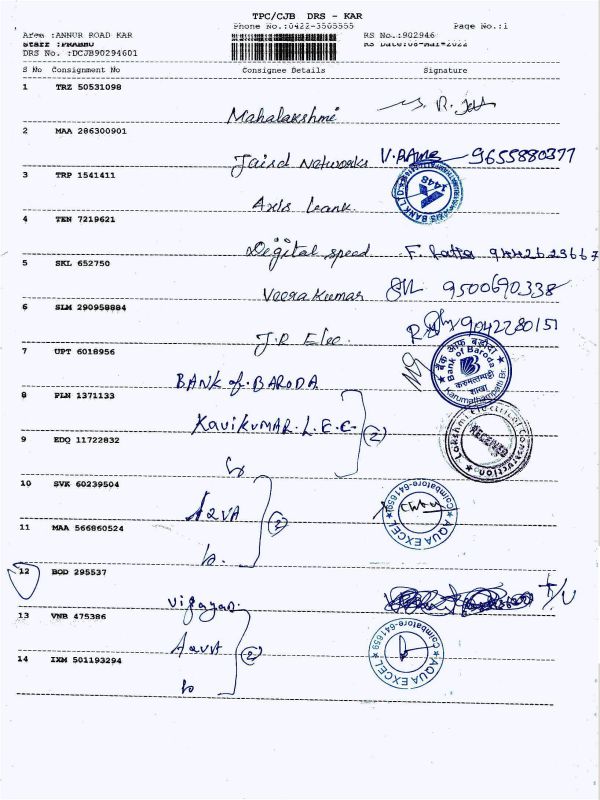 TPC/CJB DRS - KAR
Phone No.:0422-3505555 Page No.:1
Area :ANNUR ROAD KAR RS No.:902946
Staff :PRABHU RS Date:08-Mar-2022
DRS No. :DCJB90294601
S No Consignment No Consignee Details Signature
1 TRZ 50531098
Mahalakshmi
2 MAA 286300901
Networks V.RAME 9655880377
3 TRP 1541411
Axis bank 1448
AXIS BANK LTD
4 TEN 7219621
Digital speed
5 SKL 652750
Veerakumar 9500690338
6 SLM 290958884
J.R Elec 9042280151
7 UPT 6018956
BANK of BARODA
बैंक ऑफ़ बड़ौदा
Bank of Baroda
शाखा
Karumathampatti Br.
8 PLN 1371133
KaviKUMAR.L.E.C (2)
Lakshmi Electrical Construction
RECEIVED
9 EDQ 11722832
10 SVK 60239504
AQVA (2)
AQUA EXCEL
Coimbatore-641659
11 MAA 566860524
12 BOD 295537
Vijayan
13 VNB 475386
AQVA (2)
AQUA EXCEL
Coimbatore-641659
14 IXM 501193294